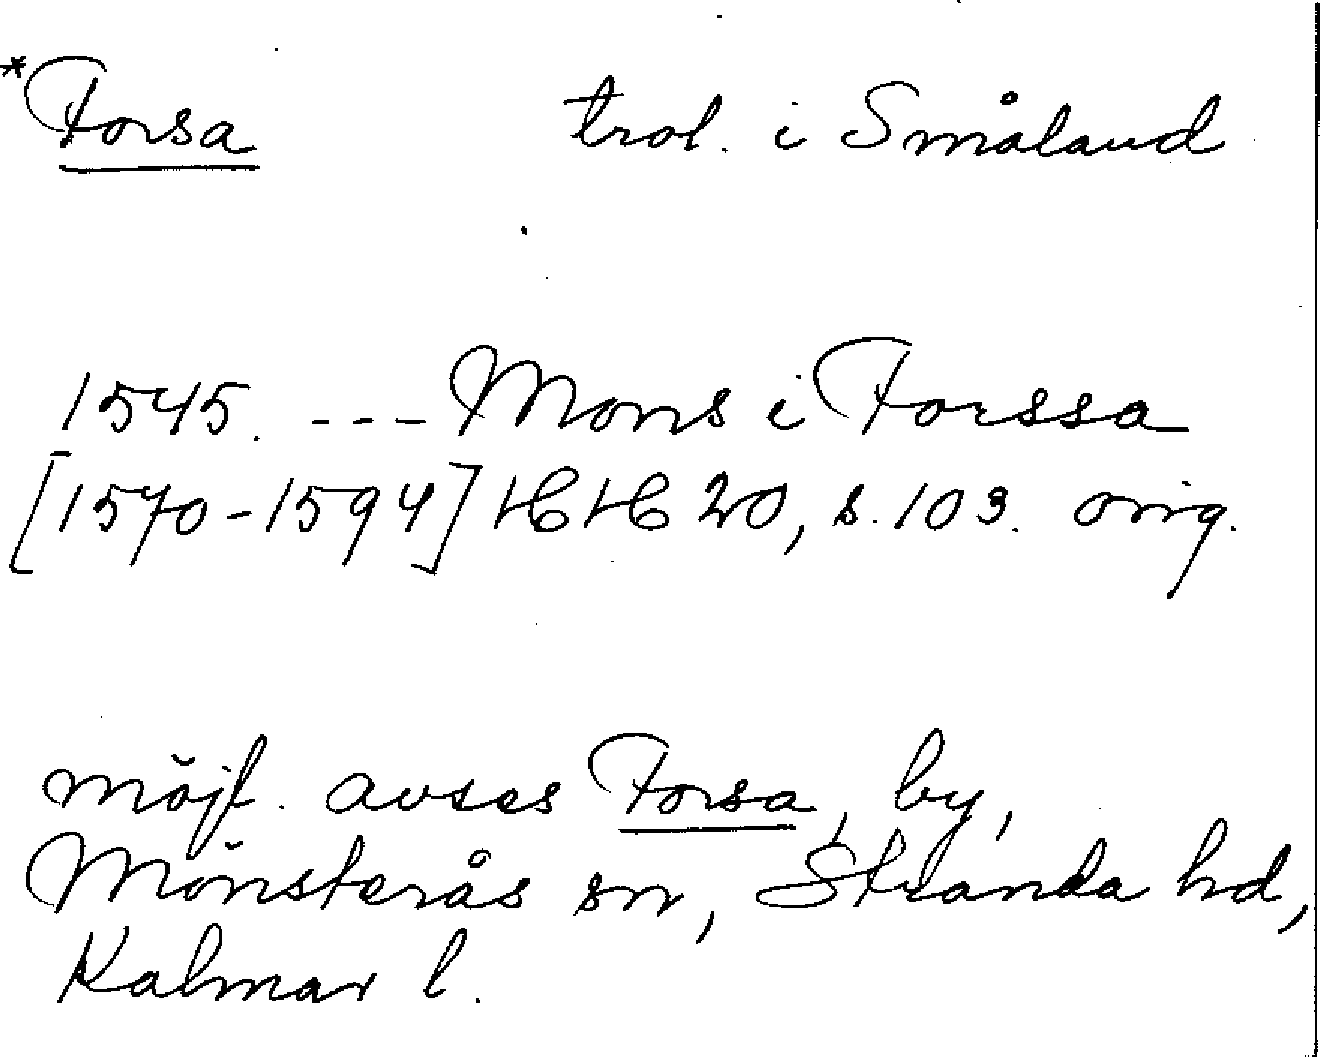 *Forsa trol. i Småland
1545. --- Mons i Forssa
[1570-1594] HH 20, s. 103. orig.
möjl. avses Forsa, by,
Mönsterås sn, Stranda hd,
Kalmar l.